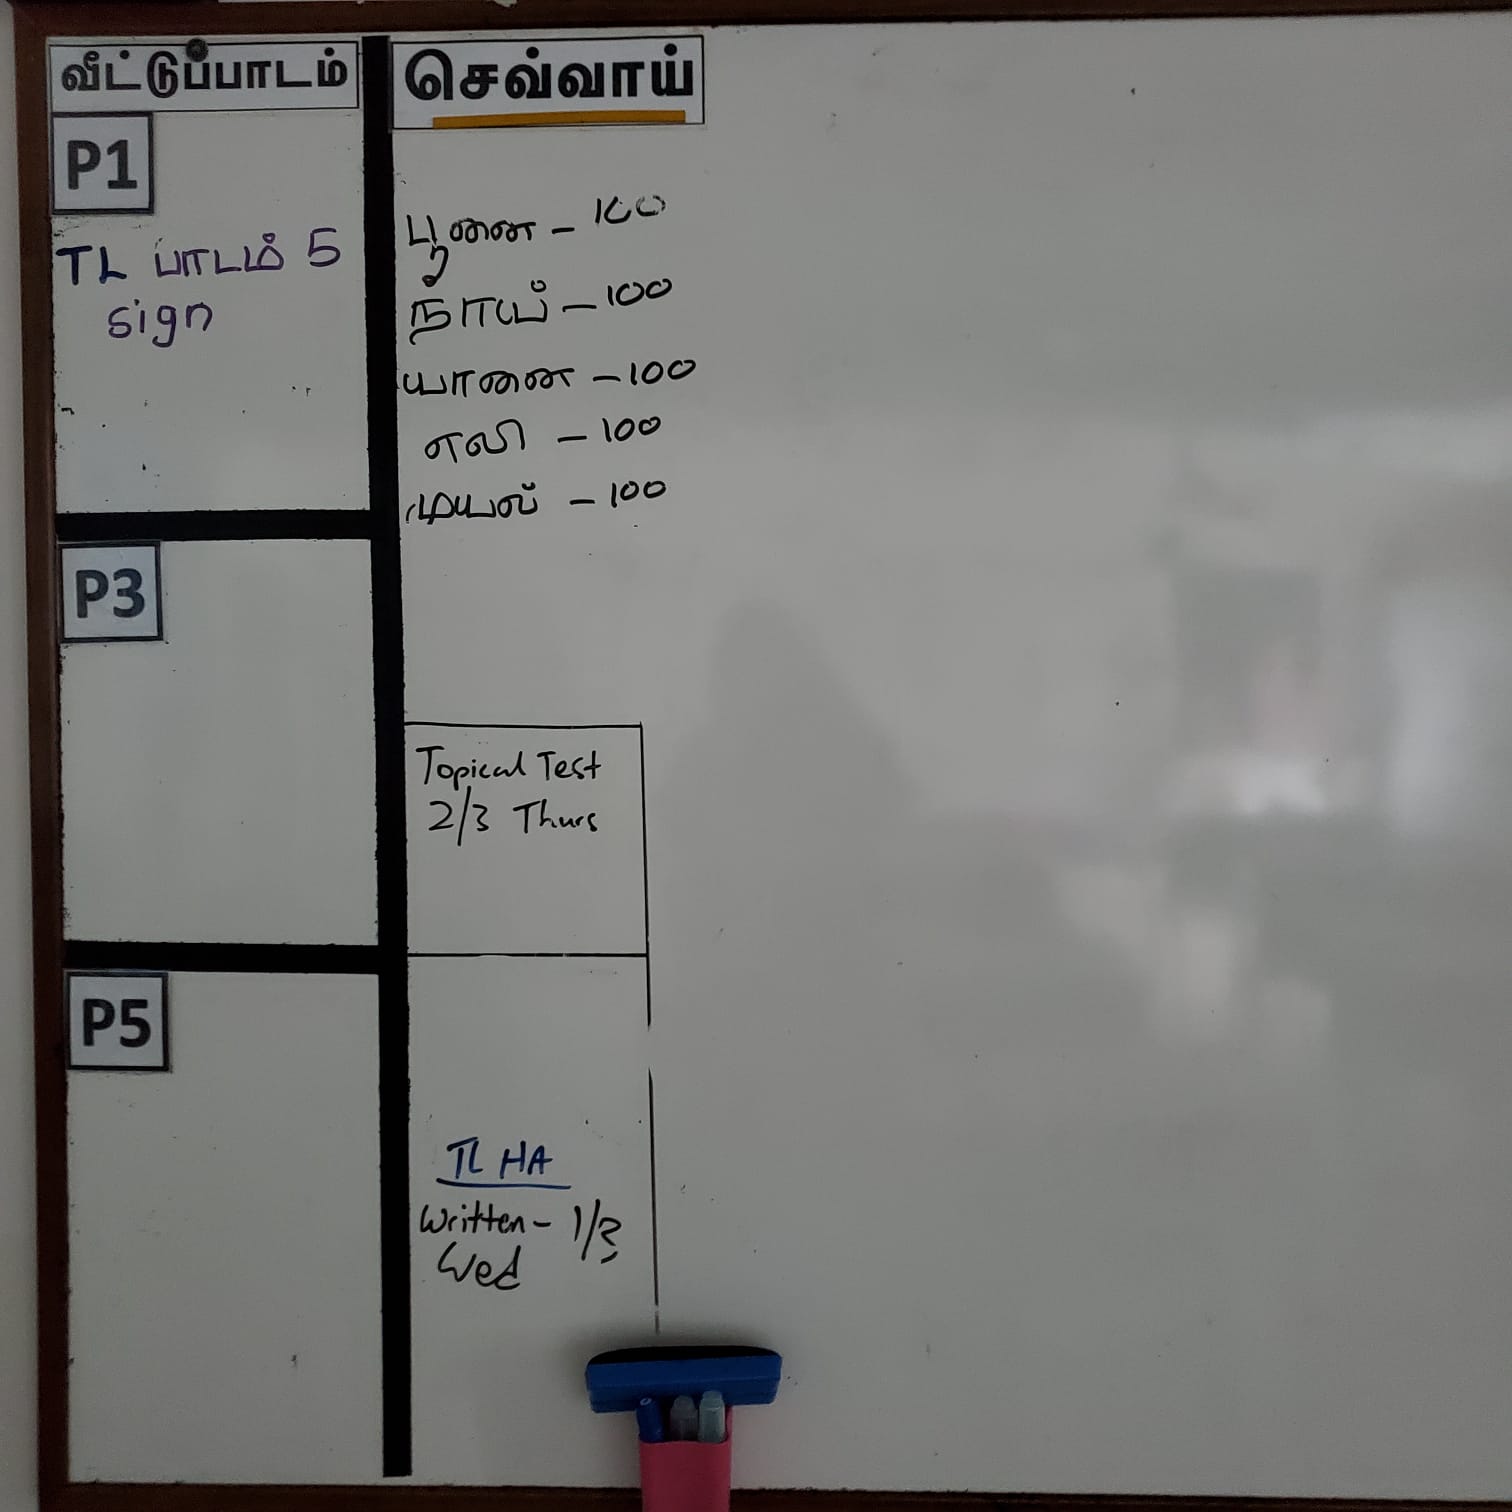 வீட்டுப்பாடம்
செவ்வாய்
P1
TL பாடம் 5
sign
பூனை - 100
நாய் - 100
யானை - 100
எலி - 100
முயல் - 100
P3
Topical Test
2/3 Thurs
P5
TL HA
Written - 1/3
Wed